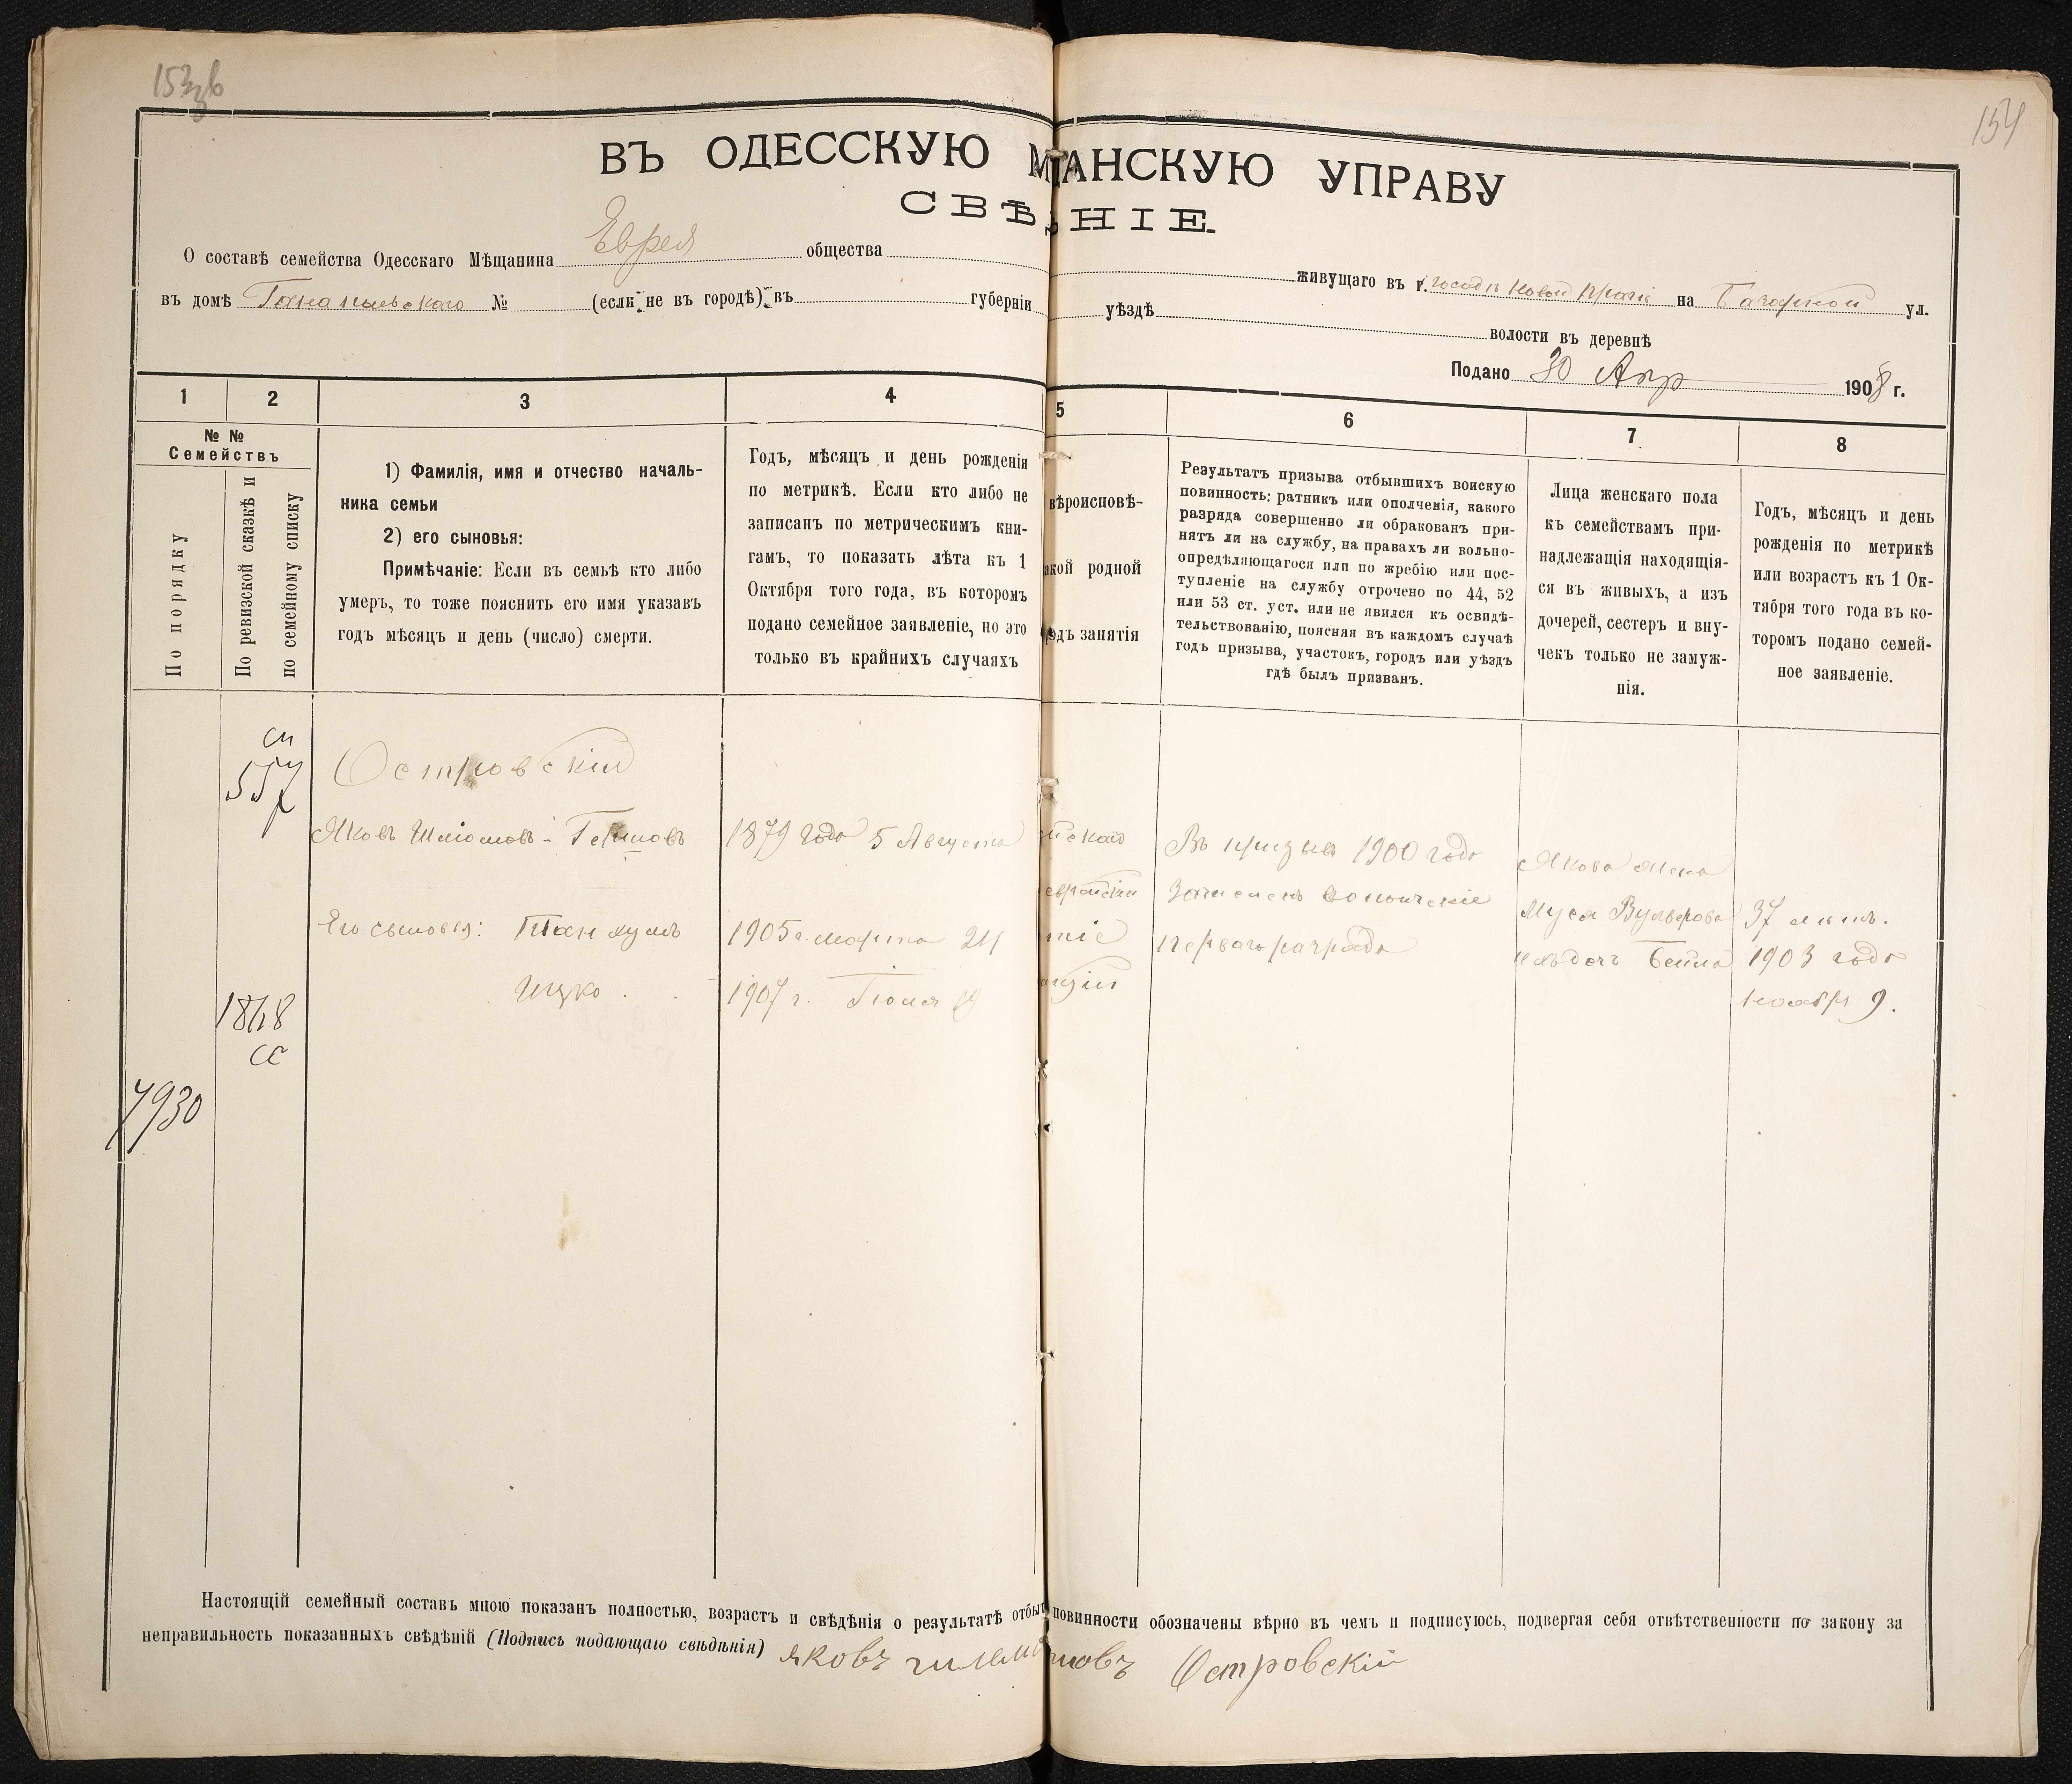 154
ВЪ ОДЕССКУЮ М АНСКУЮ УПРАВУ
СВѢ НІЕ.
О составѣ семейства Одесскаго Мѣщанина Еврея общества живущаго въ г. посадѣ Новой Прагѣ на Базарной ул.
въ домѣ № (если не въ городѣ) въ губерніи уѣздѣ
волости въ деревнѣ
Подано 30 Апр 1908 г.
1 2 3 4 5 6 7 8
№ № Семействъ
По порядку
По ревизской сказкѣ и
по семейному списку
1) Фамилія, имя и отчество началь-
ника семьи
2) его сыновья:
Примѣчаніе: Если въ семьѣ кто либо
умеръ, то тоже пояснить его имя указавъ
годъ мѣсяцъ и день (число) смерти.
Годъ, мѣсяцъ и день рожденія
по метрикѣ. Если кто либо не
записанъ по метрическимъ кни-
гамъ, то показать лѣта къ 1
Октября того года, въ которомъ
подано семейное заявленіе, но это
только въ крайнихъ случаяхъ
вѣроисповѣ-
акой родной
одъ занятія
Результатъ призыва отбывшихъ воискую
повинность: ратникъ или ополченія, какого
разряда совершенно ли обракованъ при-
нятъ ли на службу, на правахъ ли вольно-
опредѣляющагося или по жребію или пос-
тупленіе на службу отрочено по 44, 52
или 53 ст. уст. или не явился къ освидѣ-
тельствованію, поясняя въ каждомъ случаѣ
годъ призыва, участокъ, городъ или уѣздъ
гдѣ былъ призванъ.
Лица женскаго пола
къ семействамъ при-
надлежащія находящія-
ся въ живыхъ, а изъ
дочерей, сестеръ и вну-
чекъ только не замуж-
нія.
Годъ, мѣсяцъ и день
рожденія по метрикѣ
или возрастъ къ 1 Ок-
тября того года въ ко-
торомъ подано семей-
ное заявленіе.
сп
557
1848
сс
7930
Островскій
Яковъ Шліомовъ-
Его сыновья: Танхумъ
Ицко
1879 года 5 Августа
1905 г. Марта 24
1907 г. Іюля
йскаго
еврейскій
Въ призывъ 1900 года
Зачисленъ
перваго разряда
Якова жена
Муся Вульфова
ихъ дочь Бейла
37 лѣтъ.
1903 года
ноября 9.
Настоящій семейный составъ мною показанъ полностью, возрастъ и свѣдѣнія о результатѣ отбыт повинности обозначены вѣрно въ чемъ и подписуюсь, подвергая себя отвѣтственности по закону за
неправильность показанныхъ свѣдѣній (Подпись подающаго свѣдѣнія) Яковъ Островскій